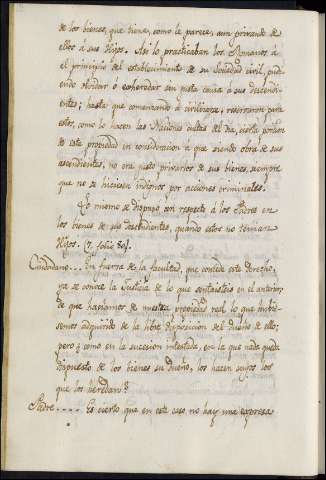 de los bienes, que tiene, como le parece, aun privando de
ellos á sus Hijos. Asi lo practicaban los Romanos á
el principio del establecimiento de su Sociedad civil, pudi-
endo olvidar ó exheredar sin justa causa á sus descendi-
entes; hasta que comenzando á civilizarse, reservaron para
estos, como lo hacen las Naciones cultas del dia, cierta porcion
de esta propiedad en consideracion a que siendo obra de sus
ascendientes, no era justo privarlos de sus bienes, siempre
que no se hiciesen indignos por acciones criminales.
Lo mismo se dispuso con respecto á los Padres en
los bienes de sus descendientes, quando estos no tenian
Hijos. (7. folio 80).
Ciudadano... En fuerza de la facultad, que concede este derecho,
ya se conoce la Justicia de lo que sentasteis en el anterior,
de que hablamos de nuestra propiedad real lo que hubie-
semos adquirido de la libre disposicion del dueño de ello;
pero ¿como en la sucesion intestada, en la que nada queda
dispuesto de los bienes su dueño, los hacen suyos los
que los heredan?
Padre..... Es cierto que en este caso no hay una expresa